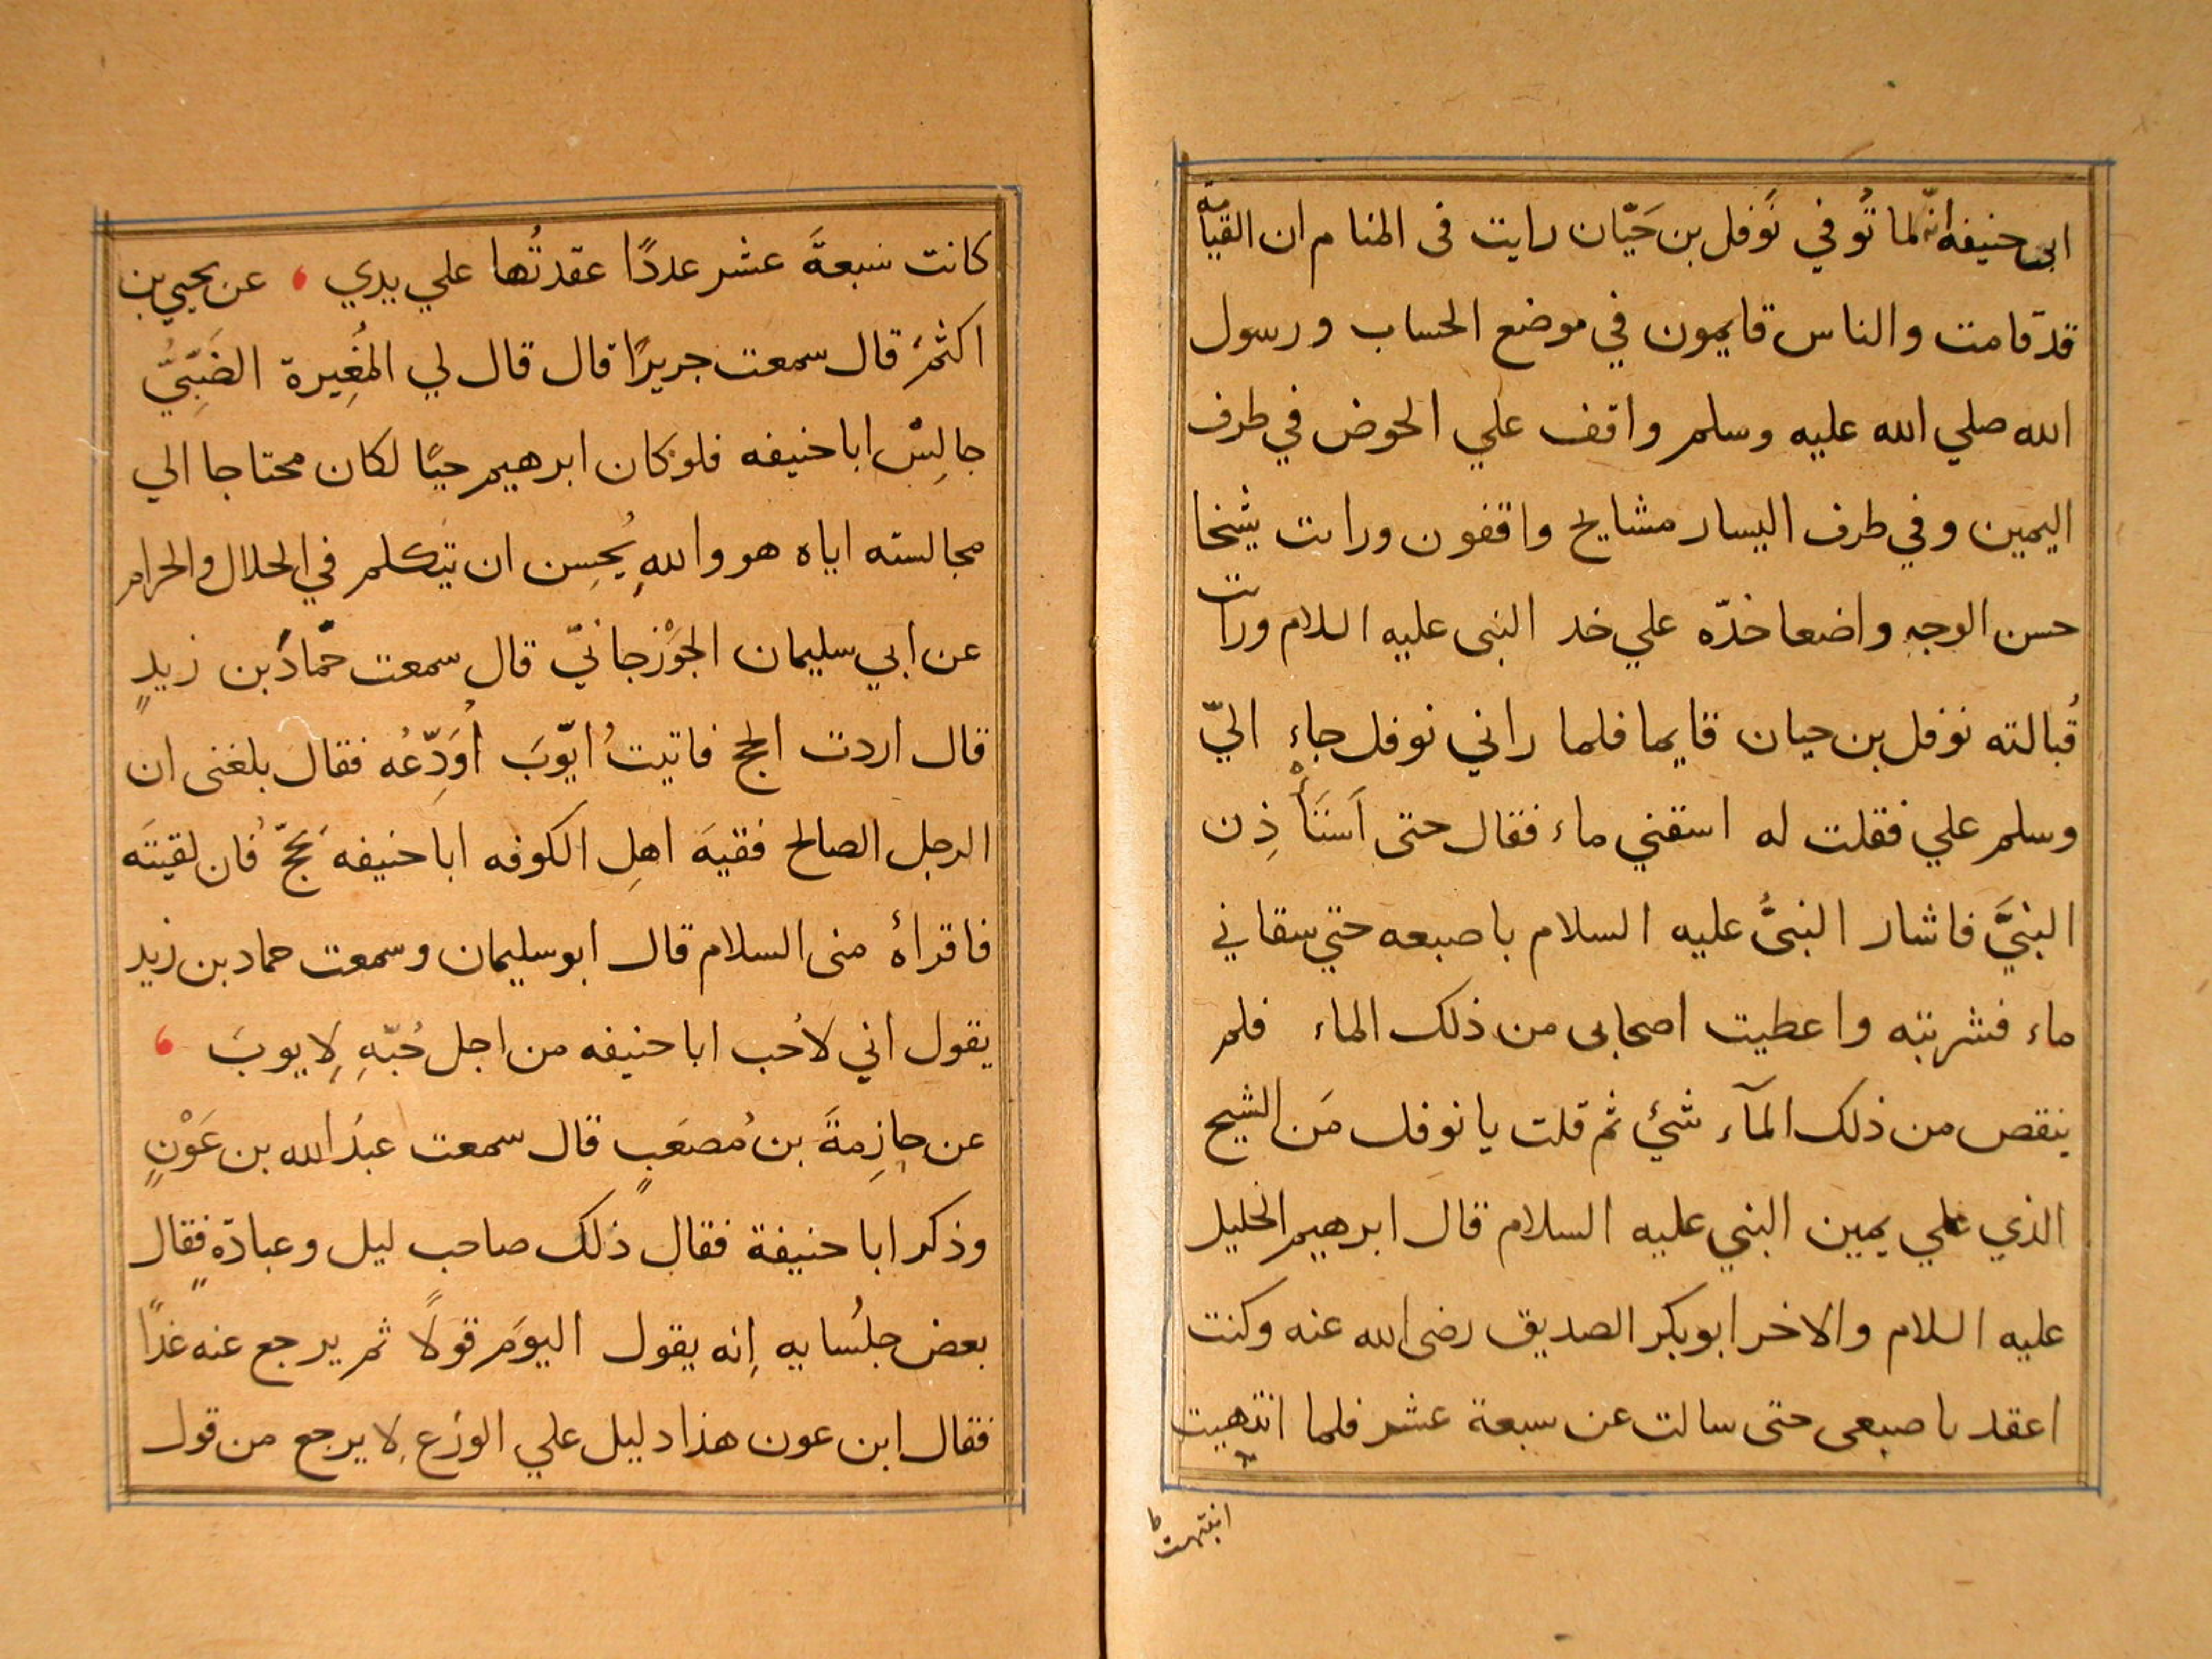 ابى حنيفه انّه لما تُوفي نَوفل بن حَيّان رايت فى المنام ان القيامة
قد قامت والناس قايمون في موضع الحساب ورسول
الله صلي الله عليه وسلم واقف علي الحوض في طرف
اليمين وفي طرف اليسار مشايخ واقفون ورايت شيخا
حسن الوجهِ واضعا خدّه علي خد النبى عليه السلام ورايت
قُبالته نوفل بن حيان قايما فلما راني نوفل جاء اليّ
وسلم علي فقلت له اسقني ماء فقال حتى اَستَأْذِن
النبيَّ فاشار النبىُّ عليه السلام باصبعه حتي سقاني
ماء فشربته واعطيت اصحابى من ذلك الماء فلم
ينقص من ذلك المآء شئ ثم قلت يا نوفل مَن الشيخ
الذي علي يمين النبي عليه السلام قال ابرهيم الخليل
عليه السلام والاخر ابو بكر الصديق رضى الله عنه وكنت
اعقد باصبعى حتى سالت عن سبعة عشر فلما انتهيت
انتبهت ط
كانت سبعةَ عشر عددًا عقدتُها علي يدي ، عن يحيي بن
اكثمَ قال سمعت جريرًا قال قال لي المُغِيرة الضَبِّيُّ
جالِسْ ابا حنيفه فلو كان ابرهيم حيًا لكان محتاجا الي
مجالسته اياه هو واللهِ يُحسِن ان يتكلم في الحلال والحرام
عن ابي سليمان الجَوْزجانيّ قال سمعت حمّادَ بن زيدٍ
قال اردت الحج فاتيتُ ايّوبَ اُوَدِّعُه فقال بلغنى ان
الرجل الصالح فقيهَ اهلِ الكوفه ابا حنيفه يَحَجّ فان لقيتَه
فاقراهُ منى السلام قال ابو سليمان وسمعت حماد بن زيد
يقول اني لاُحب ابا حنيفه من اجل حُبّهِ لِايوبَ ،
عن خارِجةَ بن مُصعَبٍ قال سمعت عبدَ الله بن عَوْنٍ
وذكر ابا حنيفة فقال ذلك صاحب ليل وعبادةٍ فقال
بعض جلُسايه اِنه يقول اليومَ قولًا ثم يرجع عنه غدًا
فقال ابن عون هذا دليل علي الورَع لا يرجع من قول